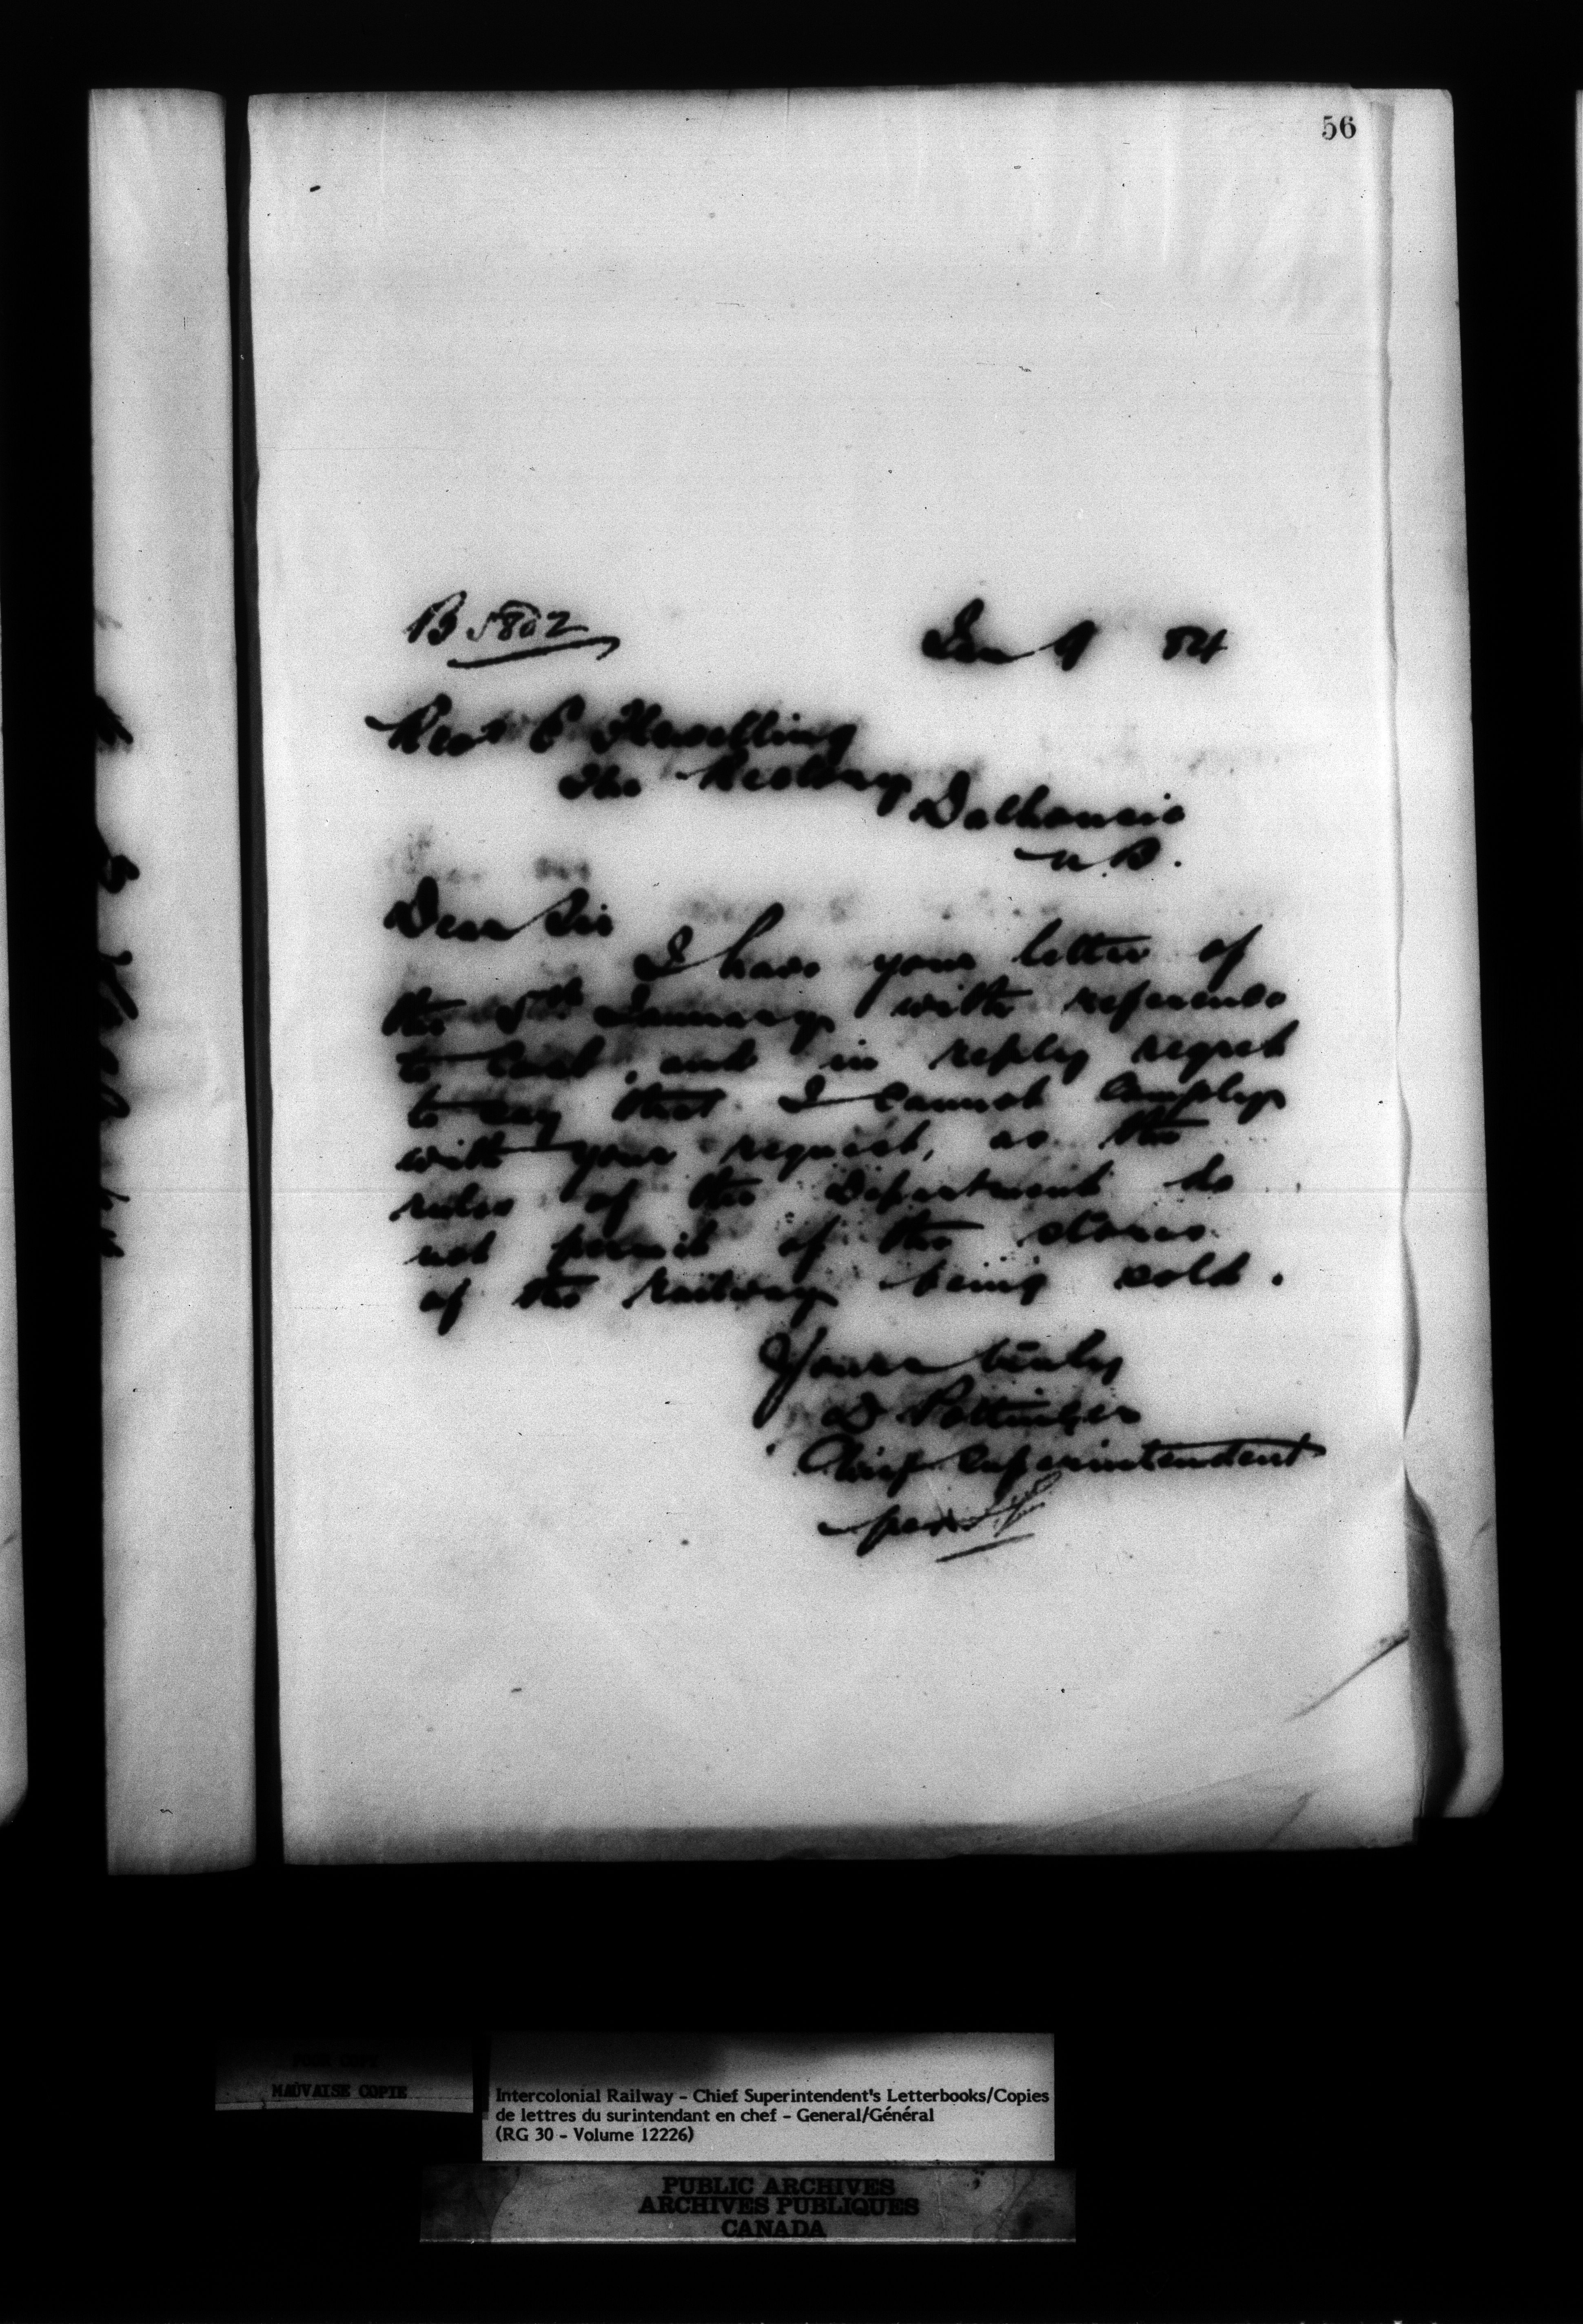 56
B 5802
Jan 9 84
Revd E Flewelling
The Rectory
Dalhousie
N.B.
Dear Sir
I have your letter of
the 5th January with reference
to Coal, and in reply regret
to say that I cannot comply
with your request, as the
rules of the Department do
not permit of the stores
of the Railway being sold.
Yours truly
D Pottinger
Chief Superintendent
per
MAUVAISE COPIE
Intercolonial Railway - Chief Superintendent's Letterbooks/Copies
de lettres du surintendant en chef - General/Général
(RG 30 - Volume 12226)
PUBLIC ARCHIVES
ARCHIVES PUBLIQUES
CANADA